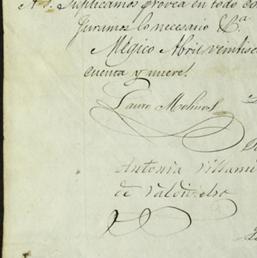 A V. Suplicamos provea en todo co
Juramos lo necesario &.a
Mégico Abril veintise
cuenta y nueve.
Lauro
Antonia Villami
de Valdivielso